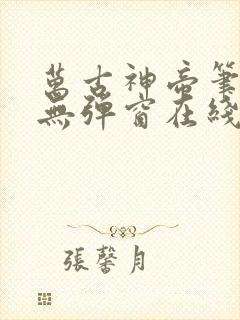 萬古神帝筆
無彈窗在綫
張馨月